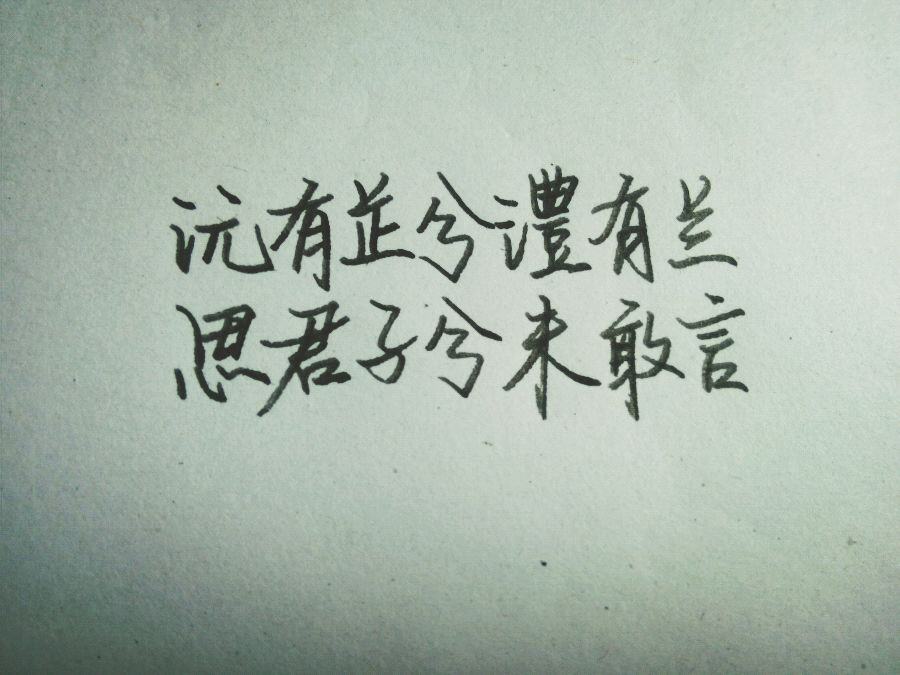 沅有芷兮澧有兰
思君子兮未敢言